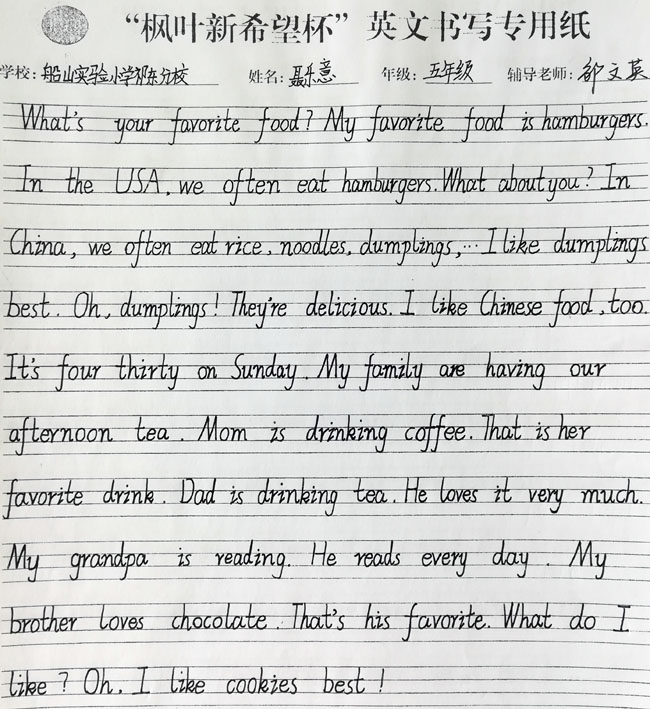 “枫叶新希望杯”英文书写专用纸
学校：船山实验小学祁东分校 姓名：聂乐意 年级：五年级 辅导老师：邹文英
What's your favorite food? My favorite food is hamburgers.
In the USA, we often eat hamburgers. What about you? In
China, we often eat rice, noodles, dumplings,… I like dumplings
best. Oh, dumplings! They're delicious. I like Chinese food, too.
It's four thirty on Sunday. My family are having our
afternoon tea. Mom is drinking coffee. That is her
favorite drink. Dad is drinking tea. He loves it very much.
My grandpa is reading. He reads every day. My
brother loves chocolate. That's his favorite. What do I
like? Oh, I like cookies best!